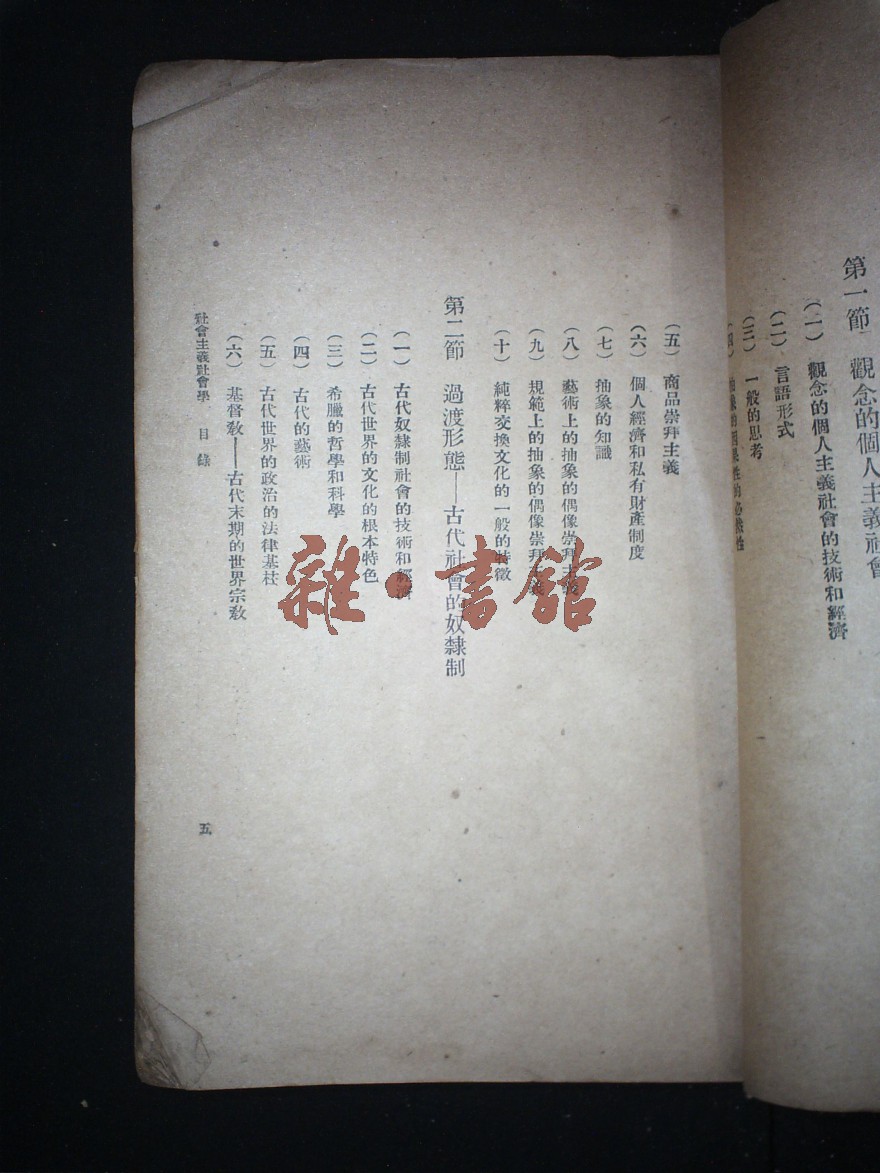 第一節 觀念的個人主義社會
（一） 觀念的個人主義社會的技術和經濟
（二） 言語形式
（三） 一般的思考
（四） 抽象的因果性的必然性
（五） 商品崇拜主義
（六） 個人經濟和私有財產制度
（七） 抽象的知識
（八） 藝術上的抽象的偶像崇拜主義
（九） 規範上的抽象的偶像崇拜主義
（十） 純粹交換文化的一般的特徵
第二節 過渡形態——古代社會的奴隸制
（一） 古代奴隸制社會的技術和經濟
（二） 古代世界的文化的根本特色
（三） 希臘的哲學和科學
（四） 古代的藝術
（五） 古代世界的政治的法律基枝
（六） 基督敎——古代末期的世界宗敎
社會主義社會學 目錄
五
雜·書館